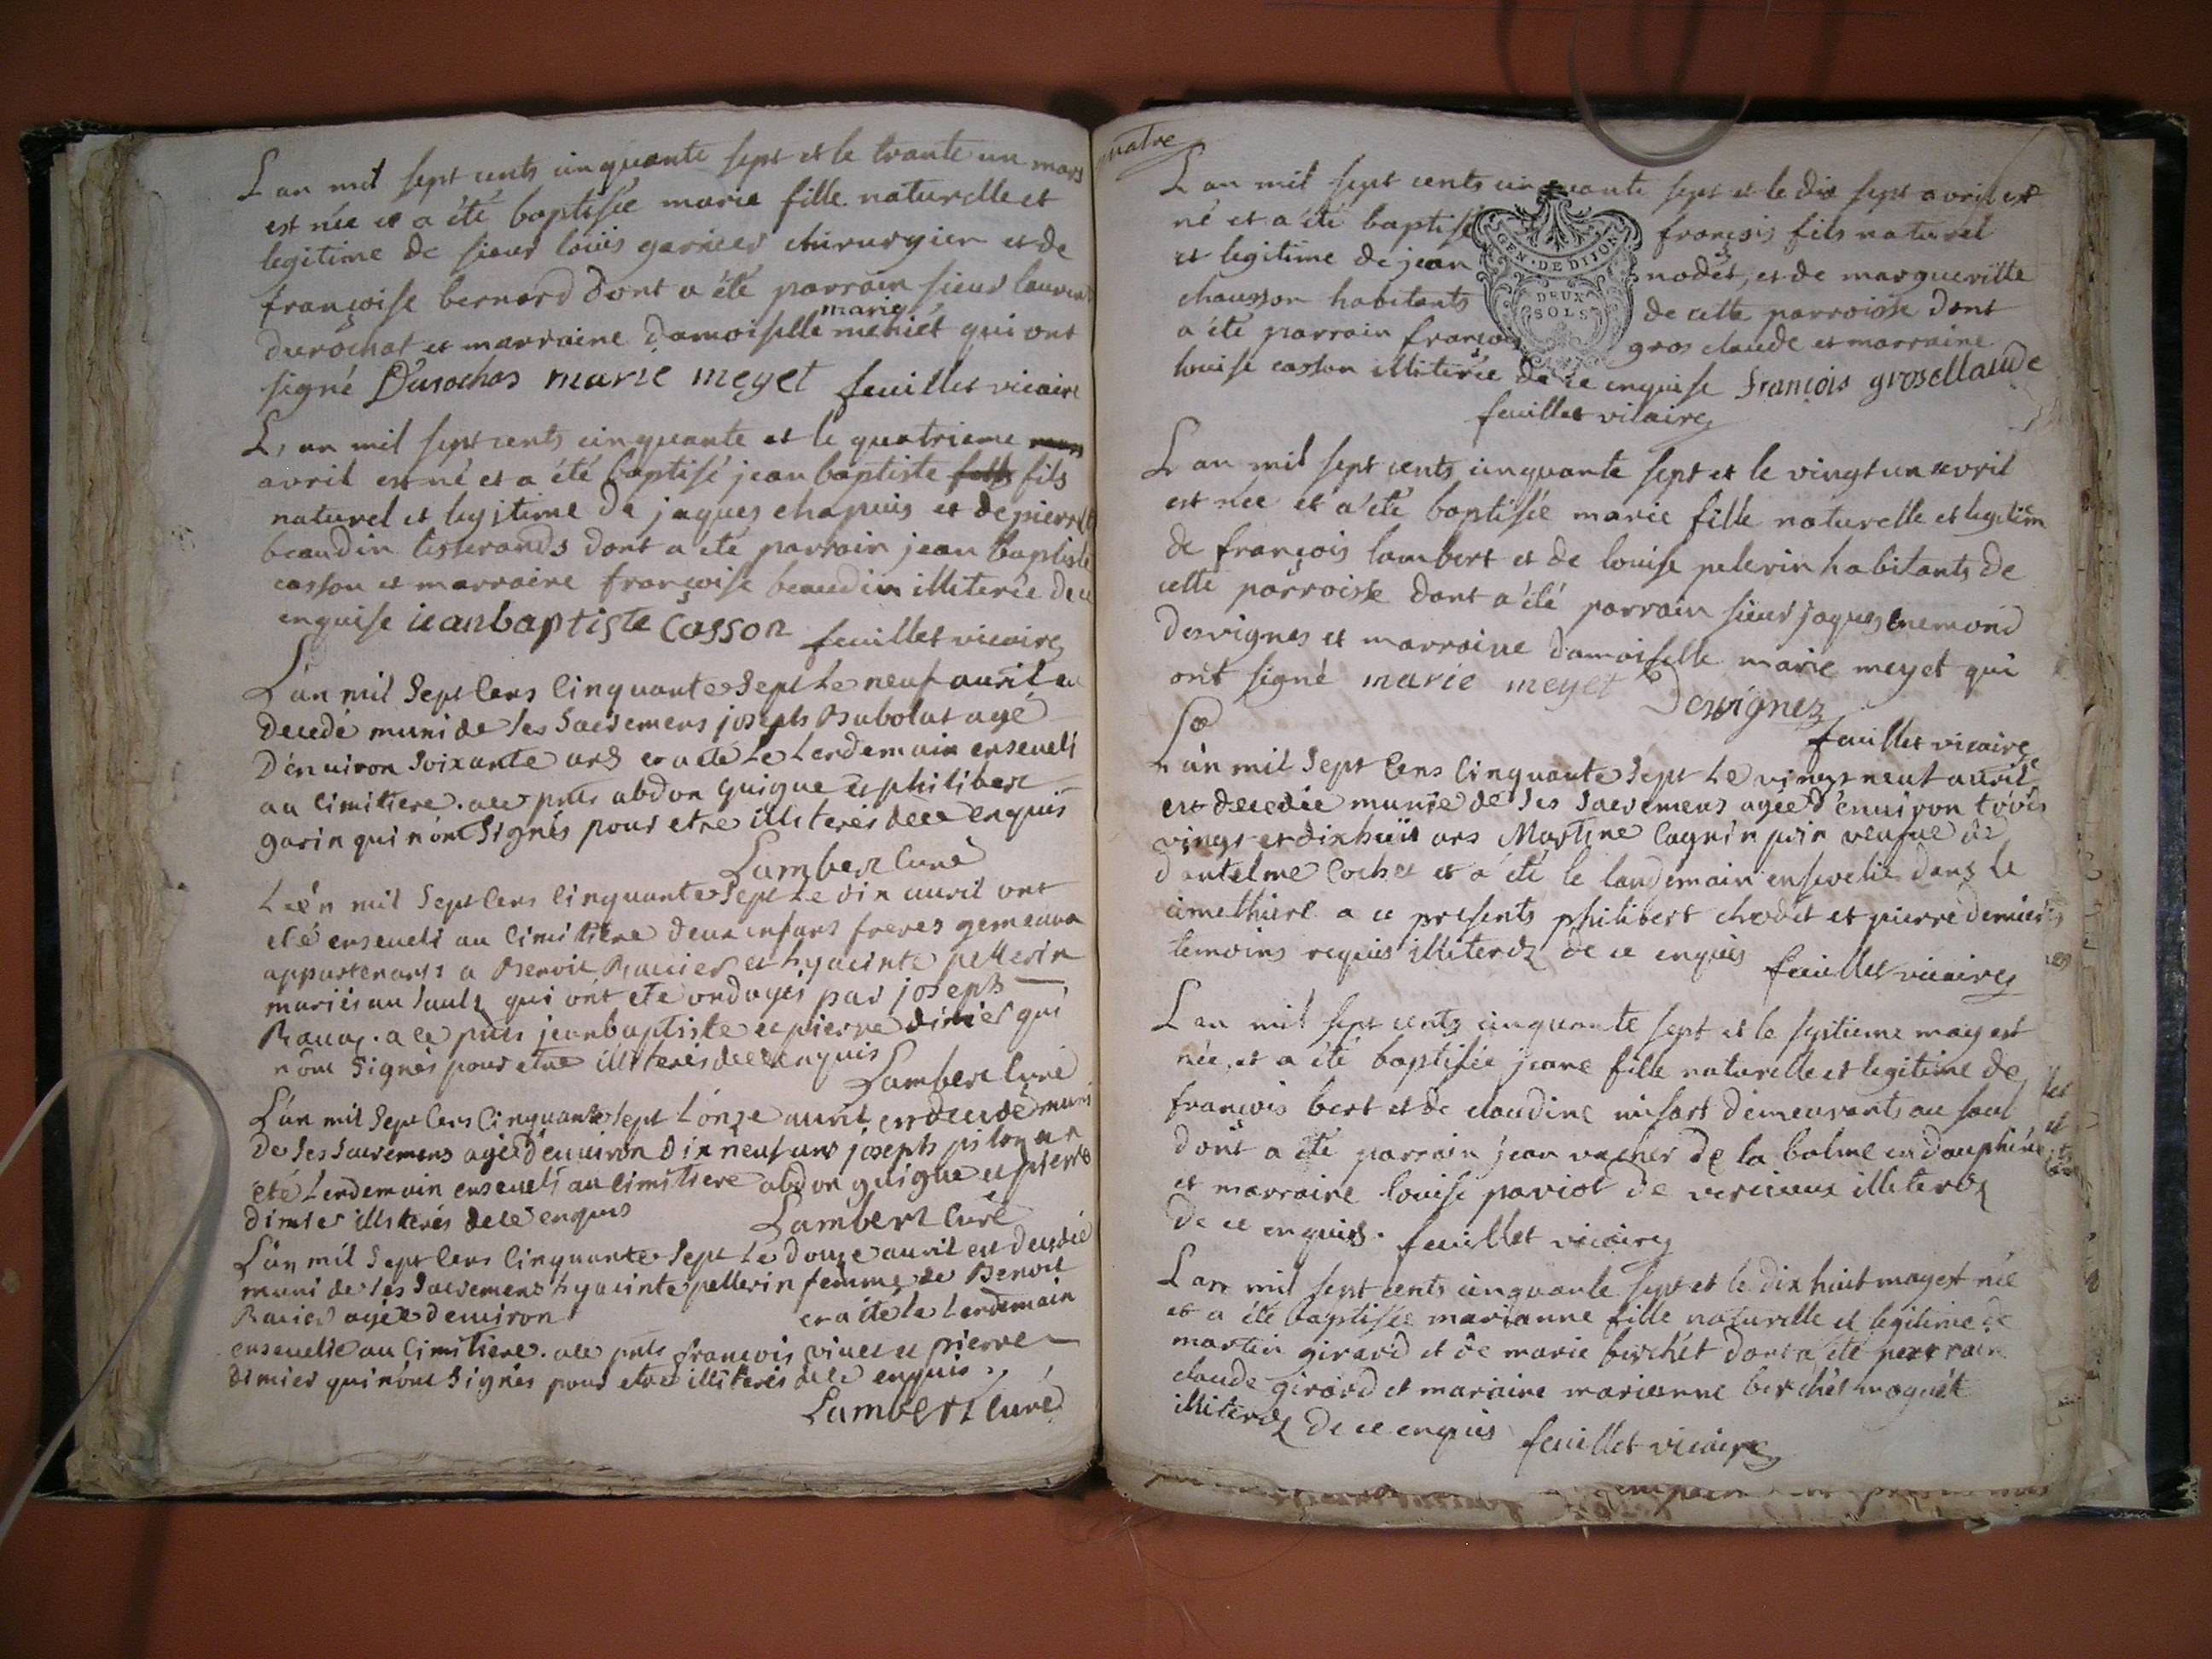 L'an mil sept cents cinquante sept et le trante un mars
est née et a été baptisée marie fille naturelle et
legitime de sieur loüis garnier chirurgien et de
françoise bernard dont a été parrain sieur laurent
durochat et marraine damoiselle marie meniet qui ont
signé Durochas marie meyet feuillet vicaire
L'an mil sept cents cinquante et le quatrieme
avril est né et a été baptisé jean baptiste fils
naturel et legitime de jaques chapuis et de pierrette
beaudin tisserands dont a été parrain jean baptiste
casson et marraine françoise beaudin illiterée de ce
enquise ieanbaptiste Casson feuillet vicaire
L'an mil Sept Cens Cinquante Sept Le neuf auril est
Decedé muni de ses Sacremens joseph Rabolat agé
D'enuiron Soixante ans et a eté Le Lendemain enseueli
au Cimitiere. a ce prts abdon guigue et philiber
garin qui n'ont Signés pour etre illiterés de ce enquis
Lambert Curé
L'an mil Sept Cens Cinquante Sept Le dix auril ont
eté enseueli au Cimitiere deux enfans freres gemeaux
appartenants a Benoit Rauier et hyacinte pellerin
mariés au Sault qui ont eté ondoyés par joseph
Rauaz. a ce prts jean baptiste et pierre dimier qui
n'ont Signés pour etre illiterés de ce enquis Lambert Curé
L'an mil Sept Cens Cinquante Sept L'onze auril est decedé muni
de ses Sacremens agé d'enuiron Dix neuf ans joseph pilon a
eté Lendemain enseueli au Cimitiere abdon guigue et pierre
dimier illiterés de ce enquis Lambert Curé
L'an mil Sept Cens Cinquante Sept Le douze auril est decedée
muni de ses Sacremens hyacinte pellerin femme de Benoit
Rauier agée d'enuiron et a eté le Lendemain
enseuelie au Cimitiere. a ce prts françois viuet et pierre
dimier qui n'ont Signés pour etre illiterés de ce enquis.
Lambert Curé
quatre
L'an mil sept cents cinquante sept et le dix sept avril est
né et a été baptisé françois fils naturel
GEN · DE DIJON
DEUX
SOLS
et legitime de jean nodet, et de marguerïtte
chausson habitants de cette parroisse dont
a été parrain françois gros claude et marraine
louise casson illiterée de ce enquise francois groscllaude
feuillet vicaire
L'an mil sept cents cinquante sept et le vingt un avril
est née et a été baptisée marie fille naturelle et legitim
de françois lambert et de louise pelerin habitants de
cette parroisse dont a été parrain sieur jaques enemond
desvignes et marraine damoiselle marie meyet qui
ont signé marie meyet Desvignez
feuillet vicaire
L'an mil Sept Cens Cinquante Sept Le vingt neuf auril
est decedée munie de ses Sacremens agée d'enuiron trois
vingt et dixhuit ans Martine Cagnin veufue
d'antelme Cochet et a été le landemain ensevelie dans le
cimethiere a ce presents philibert chodet et pierre demier
temoins requis illiterez de ce enquis feuillet vicaire
L'an mil sept cents cinquante sept et le septieme may est
née, et a été baptisée jeane fille naturelle et legitime de
françois bert et de claudine misart demeurants au saul
dont a été parrain jean vacher de la balme en dauphiné
et marraine louise paviot de vercieux illiterez
de ce enquis. feuillet vicaire
L'an mil sept cents cinquante sept et le dix huit may est née
et a été baptisée marianne fille naturelle et legitime de
martin girard et de marie berchét dont a été parrain
claude girard et maraine marianne berchét maguét
illiterez de ce enquis feuillet vicaire